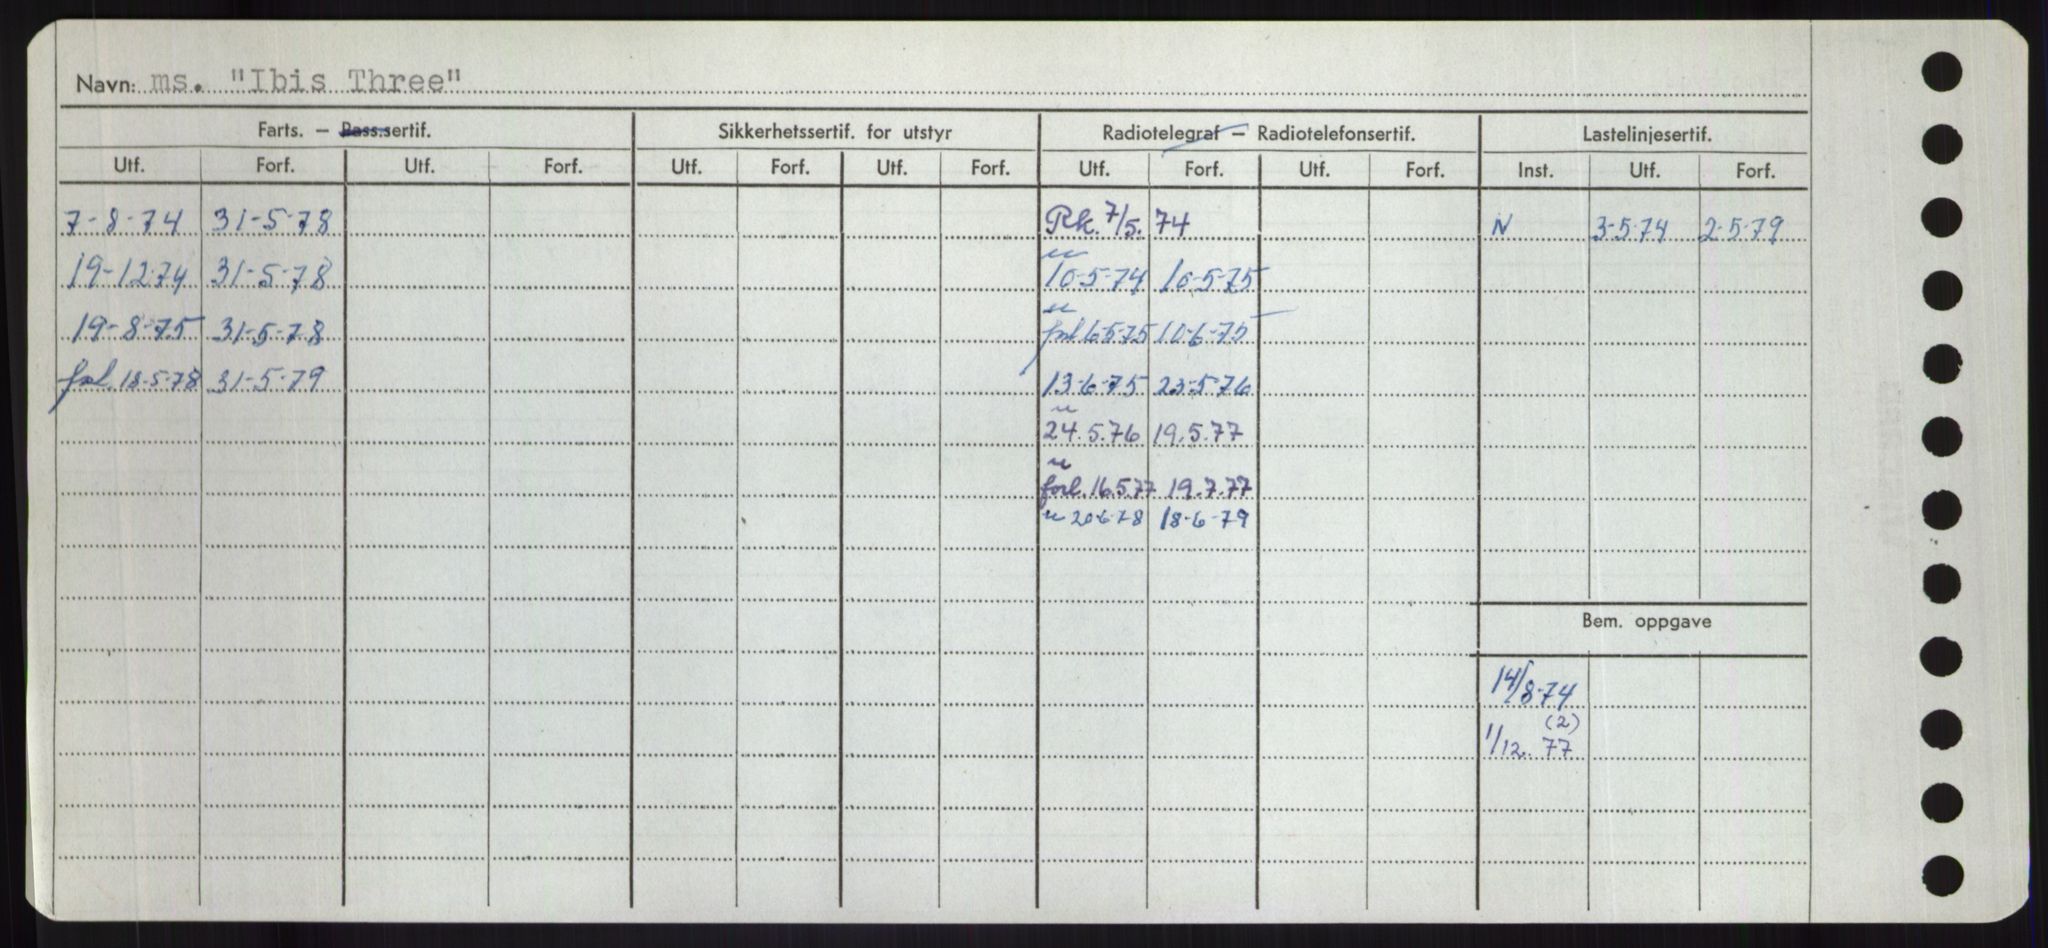 Navn: ms. "Ibis Three"
Farts. — Pass.sertif. Sikkerhetssertif. for utstyr Radiotelegraf — Radiotelefonsertif. Lastelinjesertif.
Utf. Forf. Utf. Forf. Utf. Forf. Utf. Forf. Utf. Forf. Utf. Forf. Inst. Utf. Forf.
7-8-74 31-5-78 Rk. 7/5. 74 N 3-5-74 2-5-79
19-12-74 31-5-78 10-5-74 10-5-75
19-8-75 31-5-78 forl 6-5-75 10-6-75
forl. 18-5-78 31-5-79 13-6-75 23-5-76
24.5.76 19.5.77
forl. 16.5.77 19.7.77
u 20-6-78 18-6-79
Bem. oppgave
14/8-74
(2)
1/12. 77